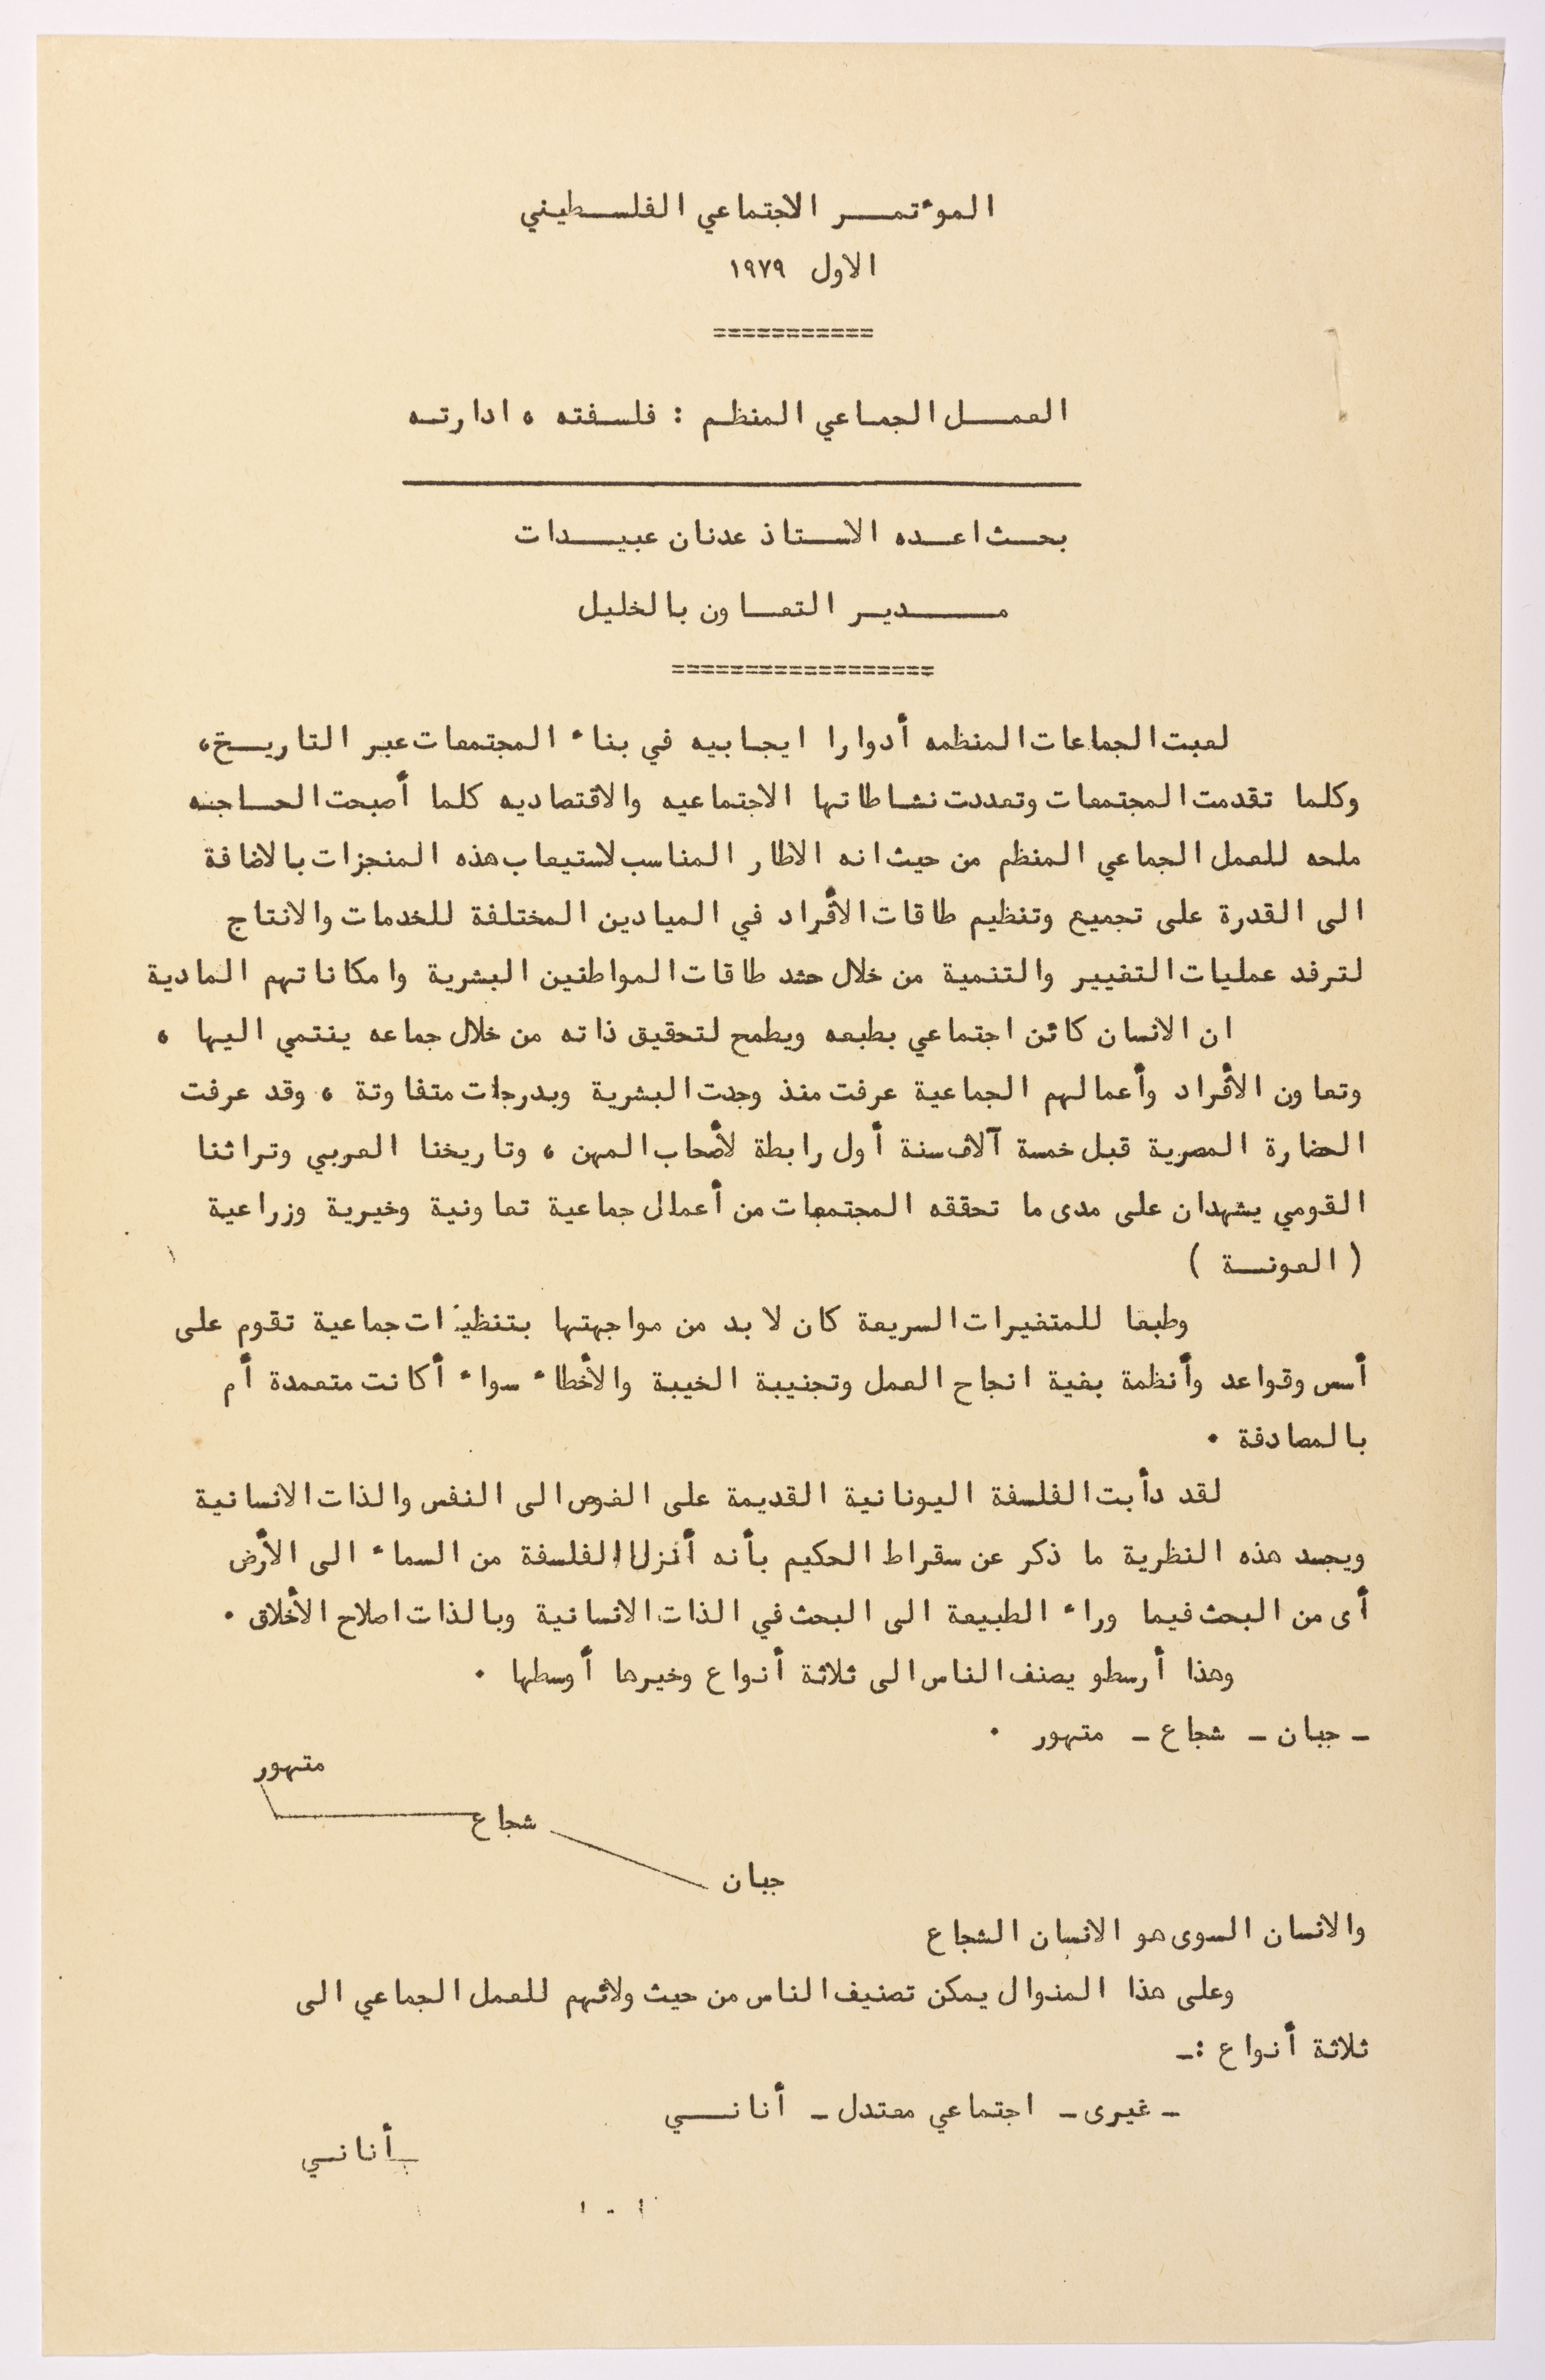 المؤتمر الاجتماعي الفلسطيني
الاول ١٩٧٩
===========
العمل الجماعي المنظم : فلسفته ، ادارته
بحث اعده الاستاذ عدنان عبيدات
مدير التعاون بالخليل
==================
لعبت الجماعات المنظمه أدوارا ايجابيه في بناء المجتمعات عبر التاريخ،
وكلما تقدمت المجتمعات وتعددت نشاطاتها الاجتماعيه والاقتصاديه كلما أصبحت الحاجه
ملحه للعمل الجماعي المنظم من حيث انه الاطار المناسب لاستيعاب هذه المنجزات بالاضافة
الى القدرة على تجميع وتنظيم طاقات الأفراد في الميادين المختلفة للخدمات والانتاج
لترفد عمليات التغيير والتنمية من خلال حشد طاقات المواطنين البشرية وامكاناتهم المادية
ان الانسان كائن اجتماعي بطبعه ويطمح لتحقيق ذاته من خلال جماعه ينتمي اليها ،
وتعاون الأفراد وأعمالهم الجماعية عرفت منذ وجدت البشرية وبدرجات متفاوتة ، وقد عرفت
الحضارة المصرية قبل خمسة آلاف سنة أول رابطة لأصحاب المهن ، وتاريخنا العربي وتراثنا
القومي يشهدان على مدى ما تحققه المجتمعات من أعمال جماعية تعاونية وخيرية وزراعية
( العونة )
وطبعا للمتغيرات السريعة كان لا بد من مواجهتها بتنظيمات جماعية تقوم على
أسس وقواعد وأنظمة بغية انجاح العمل وتجنيبة الخيبة والأخطاء سواء أكانت متعمدة أم
بالمصادفة .
لقد دأبت الفلسفة اليونانية القديمة على الغوص الى النفس والذات الانسانية
ويجسد هذه النظرية ما ذكر عن سقراط الحكيم بأنه أنزل الفلسفة من السماء الى الأرض
أى من البحث فيما وراء الطبيعة الى البحث في الذات الانسانية وبالذات اصلاح الأخلاق .
وهذا أرسطو يصنف الناس الى ثلاثة أنواع وخيرها أوسطها .
ـ جبان ـ شجاع ـ متهور .
متهور
شجاع
جبان
والانسان السوى هو الانسان الشجاع
وعلى هذا المنوال يمكن تصنيف الناس من حيث ولائهم للعمل الجماعي الى
ثلاثة أنواع :ـ
ـ غيرى ـ اجتماعي معتدل ـ أناني
أناني